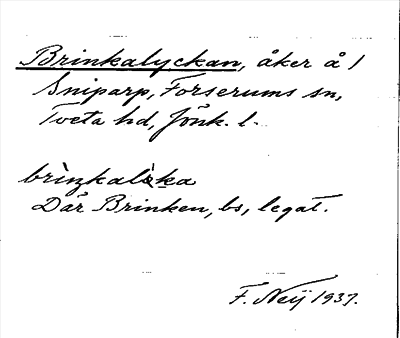 Brinkalyckan, åker å 1
Sniparp, Forserums sn,
Tveta hd, Jönk. l.
brìnkalìka
Där Brinken, bs, legat.
F. Neij 1937.